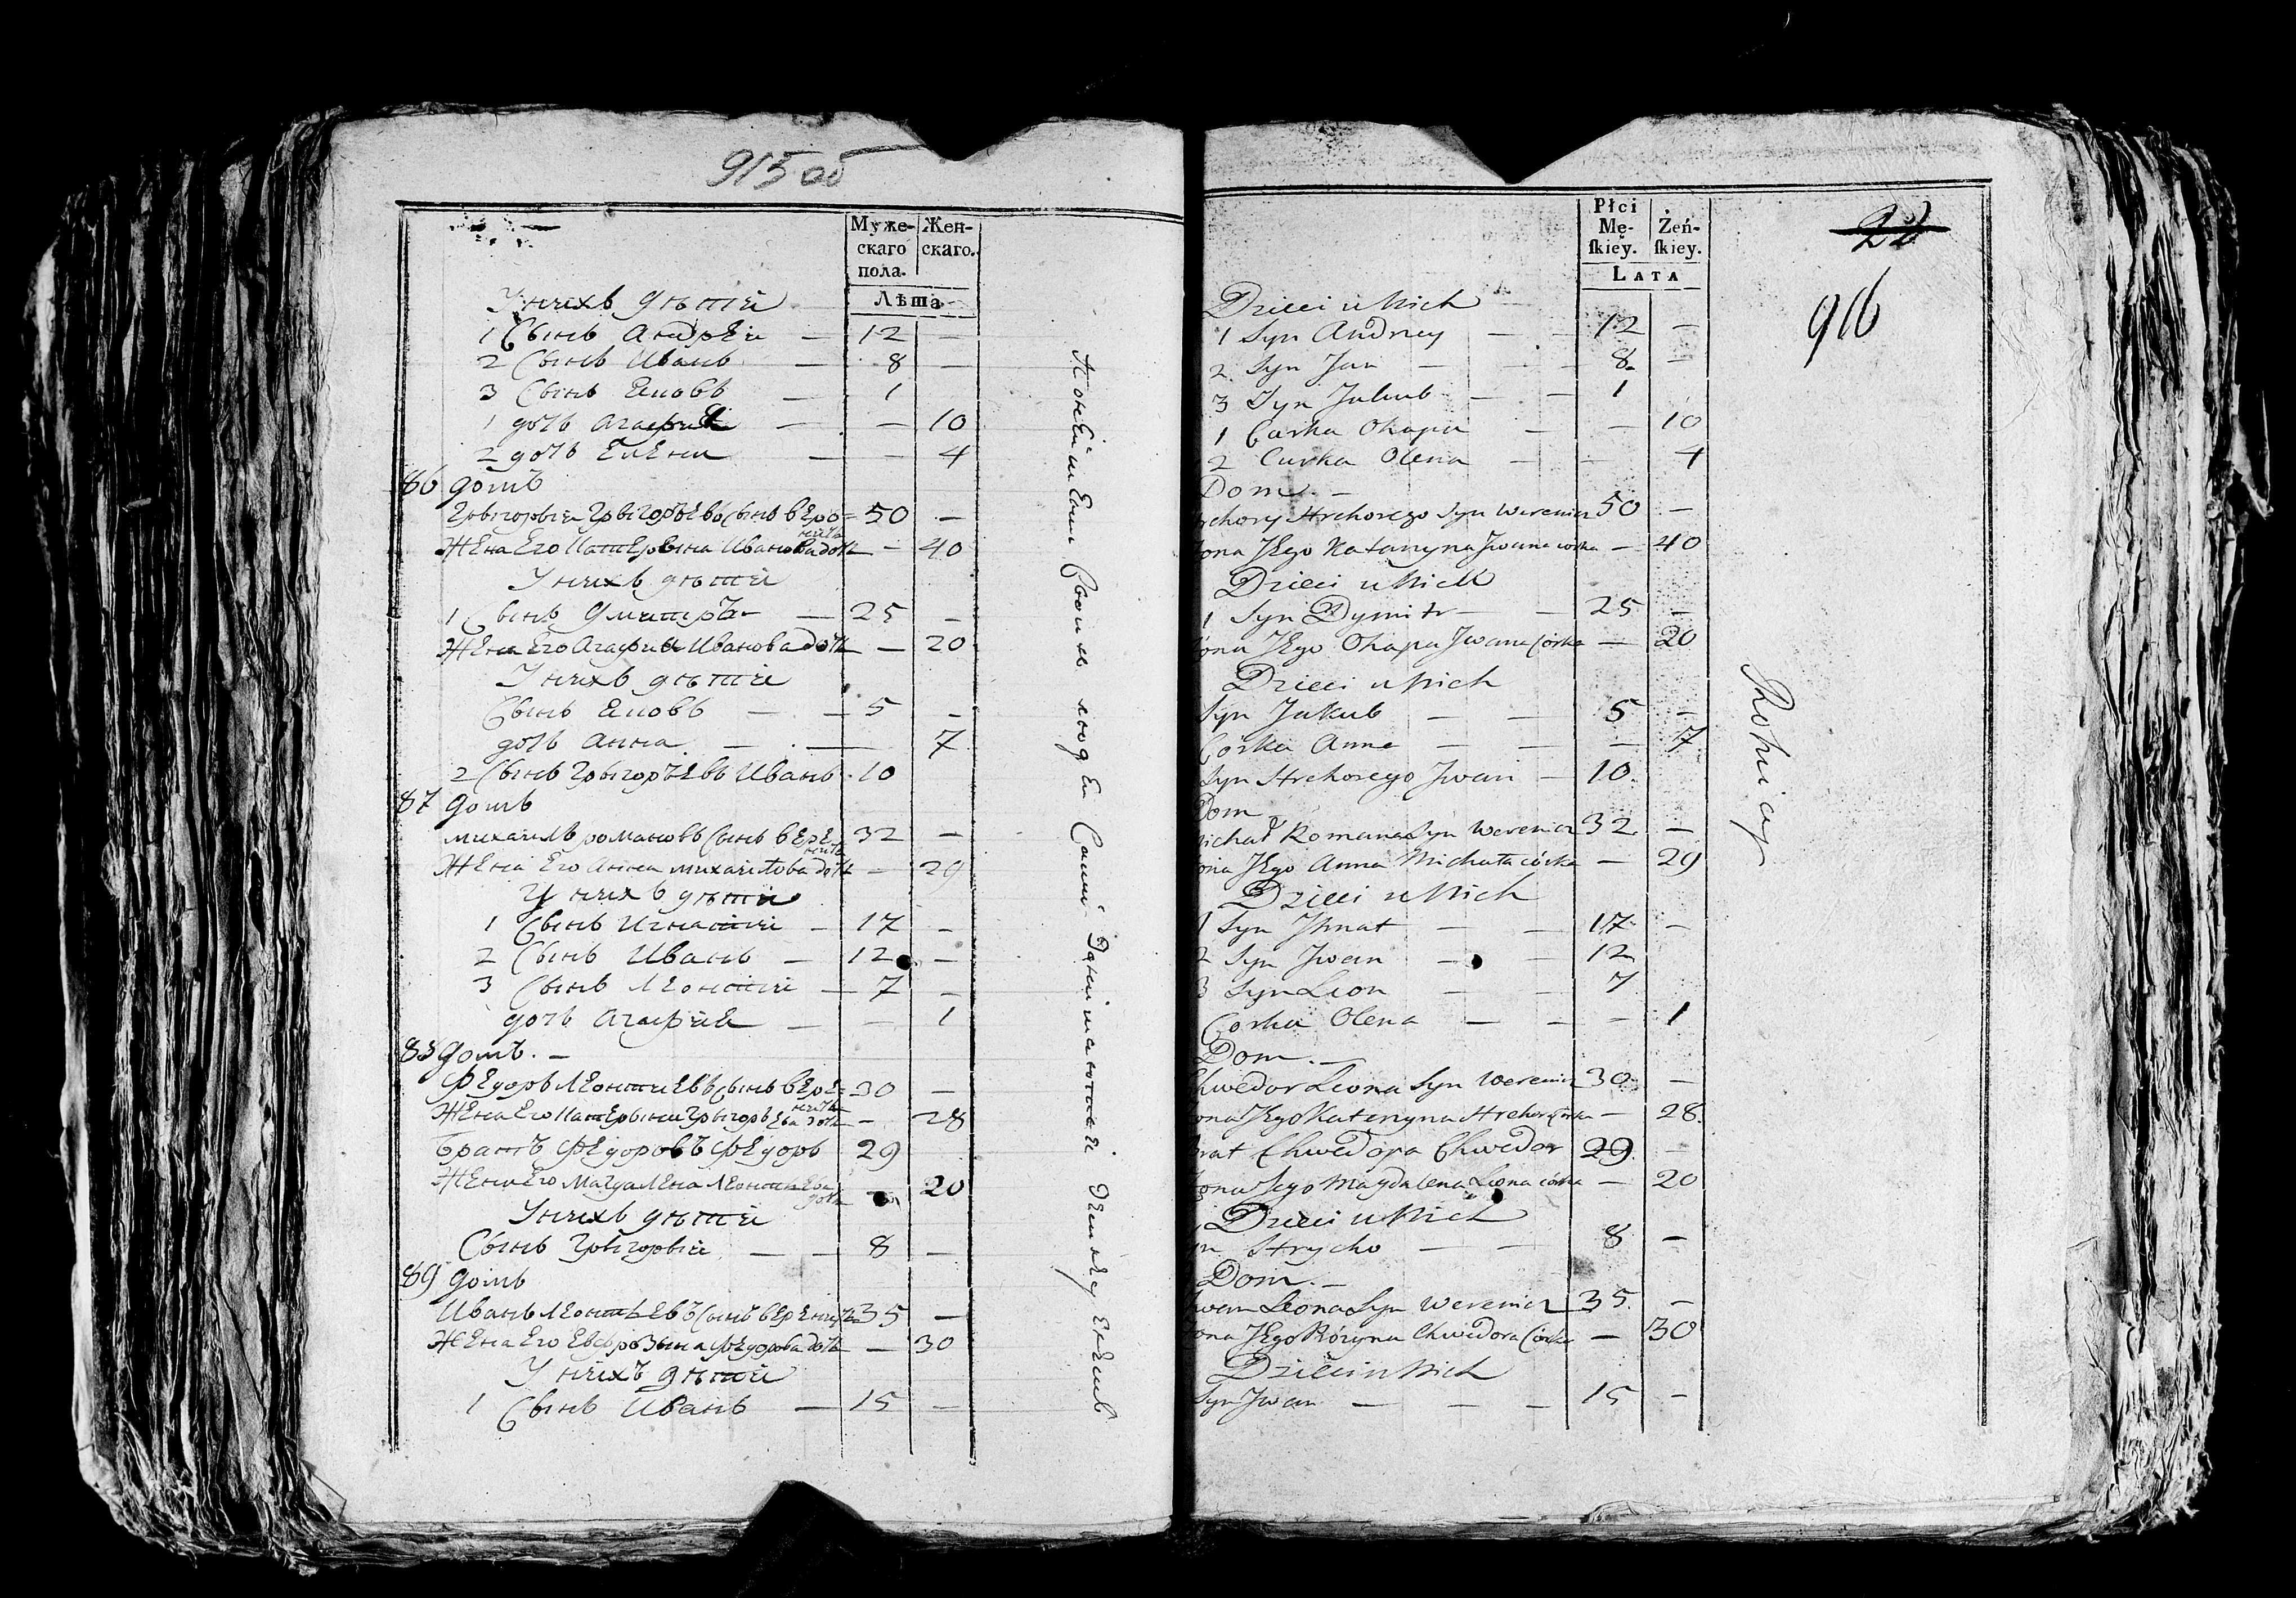 915 об
Муже-
скаго
пола.
Жен-
скаго.
Лѣта
У нихъ дѣтей
1 Сынъ Андрей — 12 —
2 Сынъ Иванъ — 8 —
3 Сынъ Яковъ — 1
1 дочь Агафия — — 10
2 дочь Елена — — 4
86 домъ
Грыгорый Грыгорьевъ Сынъ Вере= 50 —
ничъ
Жена Его Катерына Иванова дочь — 40
У нихъ дѣтей
1 Сынъ Дмитръ — 25 —
Жена Его Агафия Иванова дочь — 20
У нихъ дѣтей
Сынъ Яковъ — — 5 —
дочь Анна — — 7
2 Сынъ Грыгорьевъ Иванъ 10
87 домъ
михаилъ романовъ Сынъ Вере= 32 —
ничъ
Жена Его Анна михайлова дочь — 29
У нихъ дѣтей
1 Сынъ Игнатий — 17 —
2 Сынъ Иванъ — 12 —
3 Сынъ Леонтий — 7 —
дочь Агафия — — 1
88 домъ. —
Федоръ Леонтиевъ Сынъ Вере= 30 —
ничъ
Жена Его Катерына Грыгорьева дочь — 28
Братъ Федоровъ Федоръ 29
Жена Его Магдалена Леонтьева — 20
дочь
У нихъ дѣтей
Сынъ Грыгорый — — 8 —
89 домъ
Иванъ Леонтьевъ Сынъ Вереничъ 35 —
Жена Его Евфрозына Федорова дочь — 30
У нихъ дѣтей
1 Сынъ Иванъ — 15 —
людей
Płci
Mę-
skiey.
Żeń-
skiey.
LATA
20
916
Dzieci u Nich
1 Syn Andrey — — 12 —
2. Syn Jan — — 8. —
3 Syn Jakub — — 1
1 Carka Ohapa — — 10
2 Curka Olena — — 4
Dom. —
rehory Hrehorego Syn Werenicz 50 —
ona JEgo Katarzyna Jwana corka — 40
Dzieci u Nich
1 Syn Dymitr — — 25 —
ona JEgo Ohapa Jwana Córka — 20
Dzieci u Nich
Syn Jakub — — 5 —
Córka Anna — — — 7
Syn Hrehorego Jwan — 10.
Dom
ichał Romana Syn Werenicz 32. —
ona JEgo Anna Michała córka — 29
Dzieci u Nich
1 Syn Jhnat — — 17 —
2 Syn Jwan — — 12
3 Syn Leon — — 7
Corka Olena — — — 1
Dom. —
Chwedor Leona Syn Werenicz 30 —
ona JEgo Katerzyna Hrehor Córka — 28.
rat Chwedora Chwedor 29. —
ona JEgo Magdalena Leona córka — 20
Dzieci u Nich
yn Hrycho — — 8 —
Dom. —
wan Leona Syn Werenicz 35. —
ona JEgo Różyna Chwedora Córka — 30
Dzieci u Nich
Syn Jwan — — — 15 —